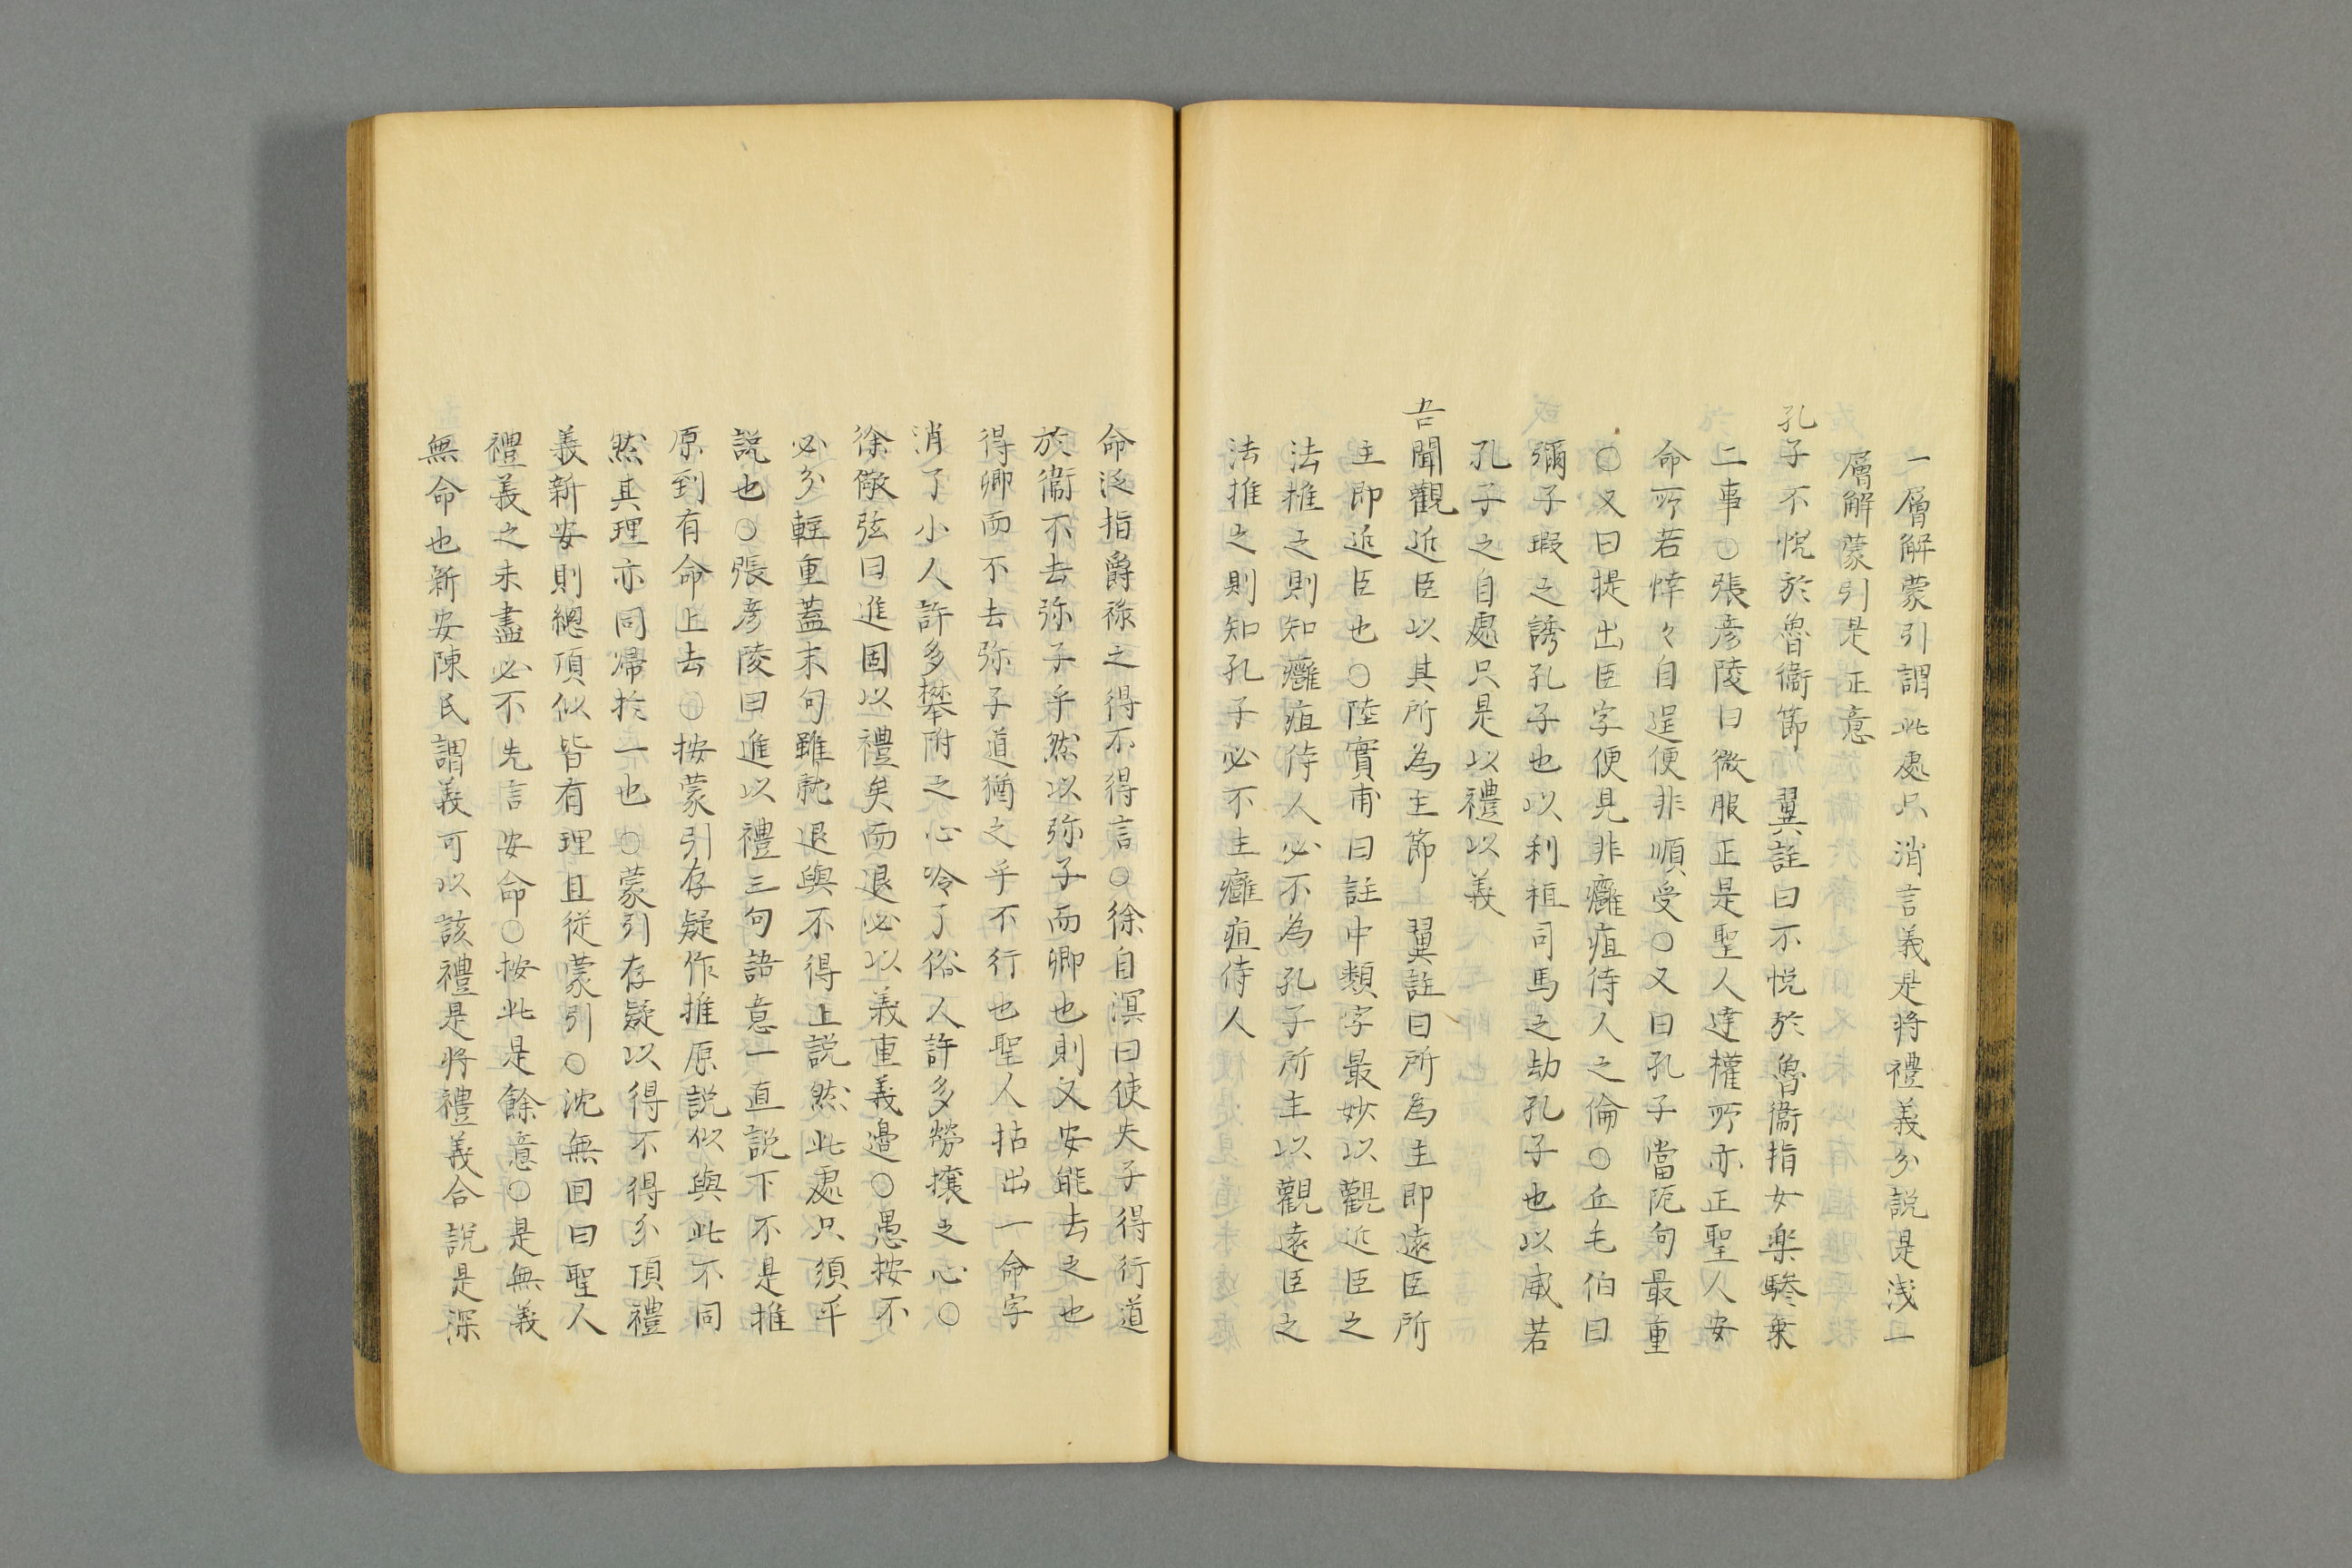 一層解蒙引謂此處只消言義是將禮義分説是浅一
層解蒙引是正意
孔子不悅於魯衞節　翼註曰不悅於魯衞指女楽驂乗
二事○張彦陵曰微服正是聖人達權所亦正聖人安
命所若悻々自逞便非順受○又曰孔子當阨句最重
○又曰提出臣字便見非癰疽侍人之倫○丘毛伯曰
彌子瑕之誘孔子也以利桓司馬之劫孔子也以威若
孔子之自處只是以禮以義
吾聞觀近臣以其所為主節　翼註曰所為主即遠臣所
主即近臣也○陸實甫曰註中類字最妙以觀近臣之
法推之則知癰疽侍人必不為孔子所主以觀遠臣之
法推之則知孔子必不主癰疽侍人
命泛指爵祿之得不得言○徐自溟曰使夫子得行道
於衞不去弥子乎然以弥子而卿也則又安能去之也
得卿而不去弥子道猶之乎不行也聖人拈出一命字
消了小人許多攀附之心冷了俗人許多勞攘之心○
徐儆弦曰進固以禮矣而退必以義重義邊○愚按不
必分輕重蓋末句雖就退與不得上説然此處只須平
説也○張彦陵曰進以禮三句語意一直説下不是推
原到有命上去○按蒙引存疑作推原説似與此不同
然其理亦同帰於一也○蒙引存疑以得不得分頂禮
義新安則總頂似皆有理且従蒙引○沈無回曰聖人
禮義之未盡必不先言安命○按此是餘意○是無義
無命也新安陳氏謂義可以該禮是將禮義合説是深